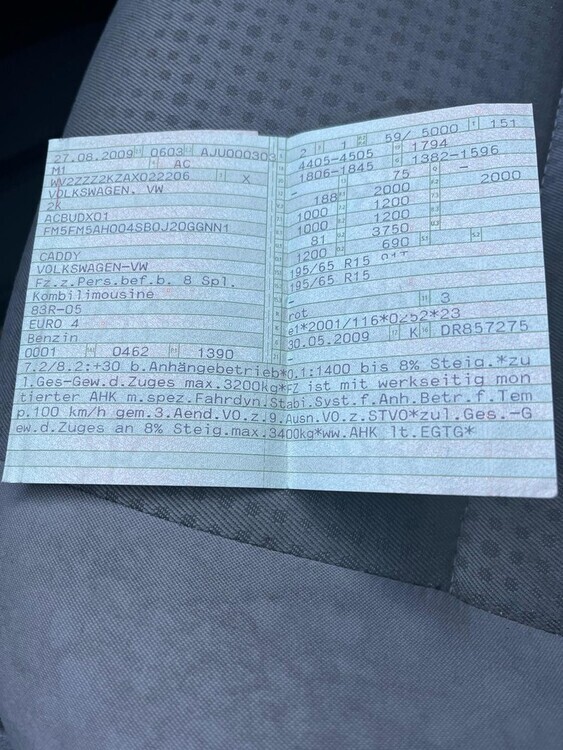 27.08.2009 0603 AJU000303
M1 AC
WV2ZZZ2KZAX022206 X
VOLKSWAGEN, VW
2K
ACBUDX01
FM5FM5AH004SB0J20GGNN1
CADDY
VOLKSWAGEN-VW
Fz.z.Pers.bef.b. 8 Spl.
Kombilimousine
83R-05
EURO 4
Benzin
0001 0462 1390
2 1 59/ 5000 151
4405-4505 1794
1806-1845 1382-1596
- 75 -
188 2000 2000
1000 1200
1000 1200
81 3750
1200 690
195/65 R15 91T
195/65 R15
-
3
rot
e1*2001/116*0252*23
30.05.2009 K DR857275
7.2/8.2:+30 b.Anhängebetrieb*0.1:1400 bis 8% Steig.*zu
l.Ges-Gew.d.Zuges max.3200kg*FZ ist mit werkseitig mon
tierter AHK m.spez.Fahrdyn.Stabi.Syst.f.Anh.Betr.f.Tem
p.100 km/h gem.3.Aend.VO.z.9.Ausn.VO.z.STVO*zul.Ges.-G
ew.d.Zuges an 8% Steig.max.3400kg*ww.AHK lt.EGTG*